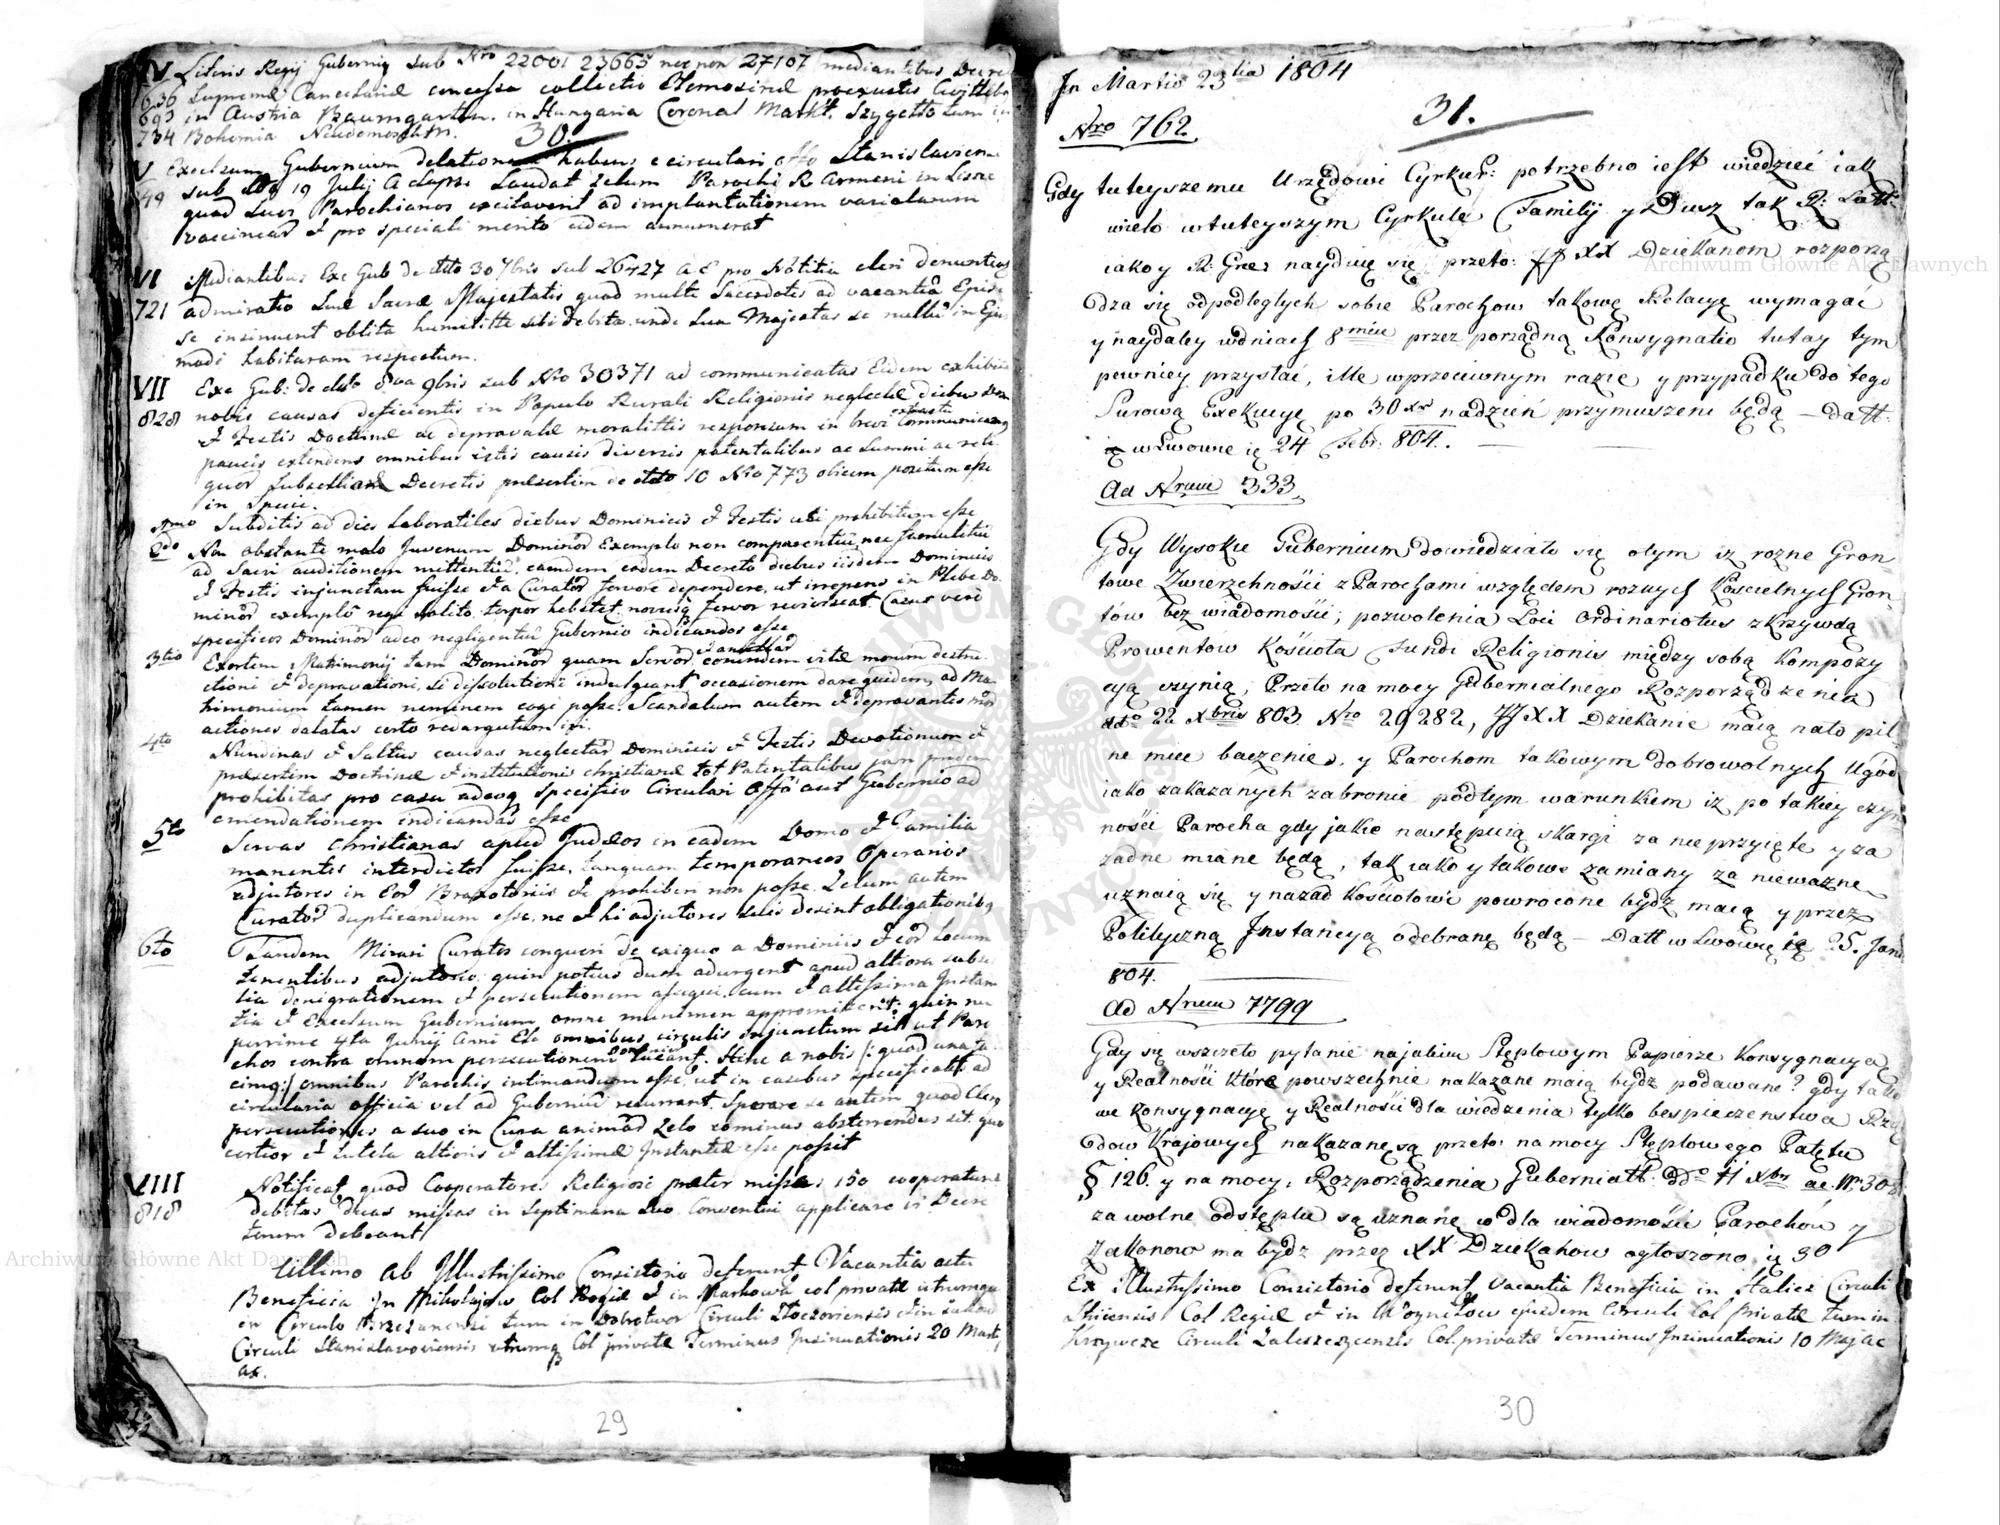 IV Literis Regij Gubernij sub Nro 22001 23665 nec non 27107 mediantibus Decre
636 Supremæ Cancelariæ concessa collectio Elemosinæ proexustis
693 in Austria Baumgarten. in Hungaria Coronal Markt. Szygetto tum in
734 Bohemia
30.
V Excelsum Gubernium delationem habens e circulari offo Stanislavien
49 sub 19 Julij A elapsi Laudat zelum Parochi R Armeni in
quod suos Parochianos excitaverit ad implantationem variolarum
vaccineas & pro speciali merito eidem annumerat
VI Mediantibus Exc Gub de dtto 30 7bris sub 26427 pro Notitia cleri denuntiat
721 admiratio Suæ Sacræ Majestatis quod multi Sacerdotes ad vacantia
se insinuent oblita humilitte sibi debita unde Sua Majestas se nullu in Ejus
modi habituram respectum.
VII Exc Gub: de dtto 8va 9bris sub Nro 30371 ad communicatas Eidem exhibi
828 nobis causas deficientis in Populo Rurali Religionis neglectæ diebus Dom
& Festis Doctrinæ ac depravatæ moralittis responsum in brevi extractu communicat
paucis extendens omnibus istis causis diversis patentalibus ac Summi ac reli
quor Subselliorum Decretis præsertim de dtto 10 Nro 773 obicem positum esse
in Specie.
1mo Subditis ad dies laboratiles diebus Dominicis & Festis uti prohibitum esse
2do Non obstante malo Juvenum Dominor Exemplo non comparentiu, nec famulitiu
ad Sacri auditionem mittentiu, eamdem eodem Decreto diebus iisdem Dominicis
& Festis injunctam fuisse & a Curator fervore dependere, ut irrepens in Plebe Do
minor exemplo rege solito torpor hebetet, novusq fervor reviviscat. Casus vero
specificos Dominor adeo negligentiu Gubernio indicandos esse
3tio Exortem Matrimonij tam Dominor quam Servor ancillar eorumdem vitæ morum destru
ctioni & depravationi, si dissolutioni indulgeant occasionem dare quidem, ad Ma
trimonium tamen neminem cogi posse. Scandalum autem & depravantes mor
actiones dalatas certo redargutum iri.
4to Nundinas & Saltus causas neglectar Dominicis & Festis Devotionum &
præsertim Doctrinæ & institutionis christianæ tot Patentalibus jam pridem
prohibitas pro casu adeoq specifico Circulari Offo aut Gubernio ad
emendationem indicandas esse
5to Servas Christianas apud Judæos in eadem Domo & Familia
manentes interdictas fuisse, tanquam temporaneos Operarios
adjutores in Eor Braxatoriis & prohiberi non posse. Zelum autem
Curator duplicandum esse, ne & hi adjutores suis desint obligationibq
6to Tandem Mirari Curatos conqueri de exiguo a Dominiis & eor Locum
tenentibus adjutorio, quin potius dum adurgent apud altiora subse
lia denigrationem & persecutionem assequi, cum & altissima Instan
tia & Excelsum Gubernium omne munimen appromiserit; quin nu
perrime 4ta Junij Anni omnibus circulis injunctum sit ut Paro
chos contra omnem persecutionem tueant. Hinc a nobis /: quod una fa
cimq :/ omnibus Parochis intimandum esse, ut in casibus specificatis ad
circularia officia vel ad Guberniu recurrant. Sperare se autem quod Clerq
persecutiones a suo in Cura animar zelo eominus absterrendus sit quo
certior & tutela altioris & altissimæ Instantiæ esse possit
VIII Notificat quod Cooperatores Religiosi præter missas 150 cooperatura
818 debitas duas missas in Septimana suo Conventui applicare vi Decre
torum debeant
tillimo Ab Illustrissimo Consistorio deferunt Vacantia actu
Beneficia In Mikołajow Col Regiæ & in Markowa col privatæ utrumque
in Circulo Brzezanensi tum in Dobrotwor Circuli Złoczoviensis & in
Circuli Stanislavoviensis utrumq Col privatæ Terminus Insinuationis 20 Marty
ac.
29
In Martio 23tia 1804
31.
Nro 762.
Gdy tuteyszemu Urzędowi Cyrkuł: potrzebno iest wiedzieć iak
wielo w tuteyszym Cyrkule Familij y Dusz tak R: Latt:
iako y R: Grec nayduię się przeto: JJ XX Dziekanom rozporzą
dza się odpodległych sobie Parochow takowę Relacyę wymagać
y naydaley w dniach 8miu przez porządną Konsygnatio tutay tym
pewniey przysłać, ile w przeciwnym razie y przypadku do tego
Surową Exekucyę po 30 xr nadzień przymuszeni będą — datt.
w Lwowie ię 24 Febr: 804.
Ad Nrum 333.
Gdy Wysokie Gubernium dowiedziało się otym iz rozne Gron
towe Zwierzchności z Parochami względem roznych Koscielnych Gron
tów bez wiadomości, pozwolenia Loci Ordinariotus z krzywdą
Prowentów Kościoła Fundi Religionis między sobą Kompozy
cyą czynią, Przeto na mocy Gubernialnego Rozporządzenia
ddto 22 Xbris 803 Nro 29282, JJ XX Dziekanie maią nato pil
ne miec baczenie, y Parochom takowym dobrowolnych Ugód
iako zakazanych zabronic podtym warunkiem iz po takiey czyn
ności Parocha gdy jakie następuią skargi za nie przyięte y za
żadne miane będą, tak iako y takowe zamiany za niewazne
uznaią się y nazad Kościołowi powrocone bydz maią y przez
Polityczną Instancyą odebrane będą — Datt w Lwowie ię 25. Janu
804.
Ad Nrum 7799
Gdy się wszczeło pytanie najakim Stęplowym Papierze Konsygnacya
y Realności które powszechnie nakazane maią bydz podawane? gdy tako
we Konsygnacyę y Realności dla wiedzenia tylko bespieczenstwa Rzą
dow Krajowych nakazane są przeto na mocy Stęplowego Patętu
§ 126. y na mocy, Rozporządzenia Guberniall. Ddo 11 Xbr ac. Nr 308
za wolne odstęplu są uznane w dla wiadomości Parochów y
Zakonow ma bydz przez XX Dziekanow ogłoszono ię 30
Ex illustrissimo Consistorio deferunt Vacantia Beneficia in Halicz Circuli
Striensis Col Regiæ & in Woyniłow ejusdem Circuli Col privatæ tum in
Krzywcze Circuli Zaleszczycensis Col. privatæ Terminus Insinuationis 10 Maj ac
30
Archiwum Główne Akt Dawnych
Archiwum Główne Akt Dawnych